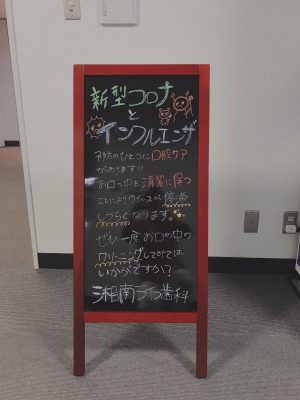 新型コロナ
と
インフルエンザ
予防のひとつに口腔ケア
があります!!
お口の中を清潔に保つ
ことによりウイルスが停滞
しづらくなります。
ぜひ一度お口の中の
クリーニングしてみては
いかがですか?
湘南ライフ歯科